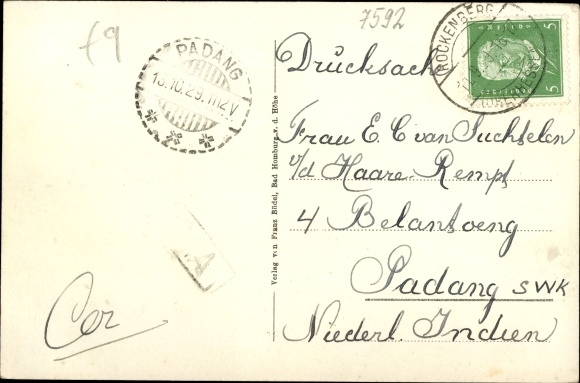 f9
7592
PADANG
13.10.29.11-12V
ROCKENBERG
5 5
Drucksache
Frau E. C van Suchtelen
v/d Haare-Remps
4 Belantoeng
Padang SWK
Niederl. Indien
Verlag von Franz Büdel, Bad Homburg v. d. Höhe
A